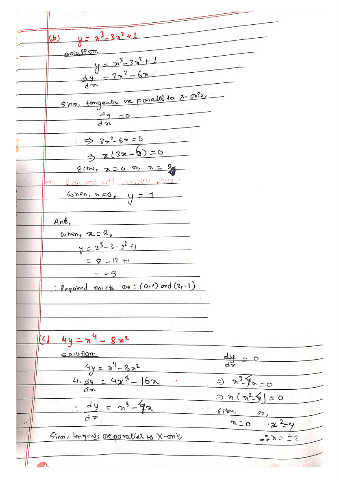 (b) y = x³-3x²+1
solution
y = x³-3x²+1
dy/dx = 3x²-6x
Since, tangents are parallel to x-axis,
dy/dx = 0
⇒ 3x²-6x=0
⇒ x(3x-6)=0
Either, x=0 or, x=2
when, x=0, y = 1
And,
when, x=2,
y = 2³-3·2²+1
= 8-12+1
= -3
∴ Required points are: (0,1) and (2,-3)
(c) 4y = x⁴ - 8x²
solution
4y = x⁴-8x²
4·dy/dx = 4x³-16x
∴ dy/dx = x³-4x
Since, tangents are parallel to X-axis
dy/dx = 0
⇒ x³-4x=0
⇒ x(x²-4)=0
Either, or,
x=0 x²=4
∴x=±2